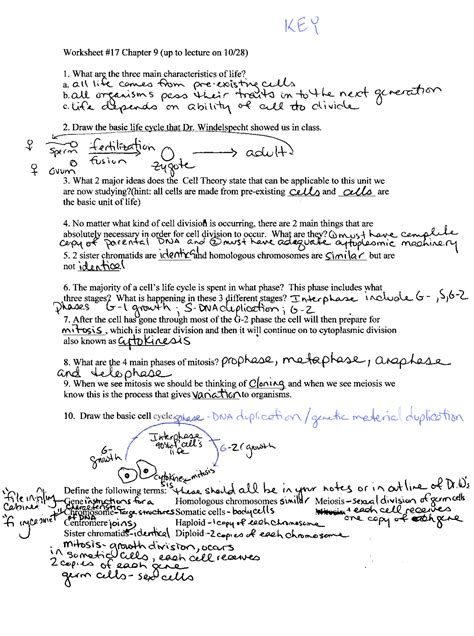 KEY
Worksheet #17 Chapter 9 (up to lecture on 10/28)
1. What are the three main characteristics of life?
a. all life comes from pre-existing cells
b. all organisms pass their traits in to the next generation
c. life depends on ability of cell to divide
2. Draw the basic life cycle that Dr. Windelspecht showed us in class.
♀ sperm fertilization → adult
♀ ovum fusion zygote
3. What 2 major ideas does the Cell Theory state that can be applicable to this unit we
are now studying?(hint: all cells are made from pre-existing cells and cells are
the basic unit of life)
4. No matter what kind of cell division is occurring, there are 2 main things that are
absolutely necessary in order for cell division to occur. What are they? ① must have complete
copy of parental DNA and ② must have adequate cytoplasmic machinery
5. 2 sister chromatids are identical and homologous chromosomes are similar but are
not identical
6. The majority of a cell's life cycle is spent in what phase? This phase includes what
three stages? What is happening in these 3 different stages? Interphase include G-1, S, G-2
phases G-1 growth; S-DNA duplication; G-2
7. After the cell has gone through most of the G-2 phase the cell will then prepare for
mitosis, which is nuclear division and then it will continue on to cytoplasmic division
also known as cytokinesis
8. What are the 4 main phases of mitosis? prophase, metaphase, anaphase
and telophase
9. When we see mitosis we should be thinking of Cloning and when we see meiosis we
know this is the process that gives variation to organisms.
10. Draw the basic cell cycle S phase - DNA duplication / genetic material duplication
Interphase
90% of cell's
life
G-1 growth
G-2 growth
cytokinesis mitosis
Define the following terms: these should all be in your notes or in outline of Dr. W's
file in filing cabinet Gene instructions for a characteristic Homologous chromosomes similar Meiosis - sexual division of germ cells
Chromosome - large structures of DNA Somatic cells - body cells each cell receives
Centromere joins) Haploid - 1 copy of each chromosome one copy of each gene
Sister chromatids - identical Diploid - 2 copies of each chromosome
mitosis - growth division, occurs
in somatic cells, each cell receives
2 copies of each gene
germ cells - sex cells